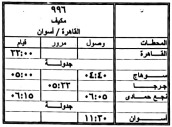 ٩٩٦
مكيف
القاهرة / أسوان
المحطات وصول مرور قيام
القاهرة ٢٢:٠٠
جدولة
سوهاج ٠٤:٤٠ ٠٥:٠٠
جرجا ٠٥:٢٢
نجع حمادى ٠٦:٠٥ ٠٦:١٥
جدولة
أسوان ١١:٣٠